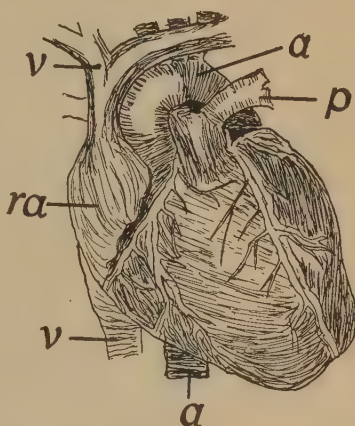 v
a
p
ra
v
a